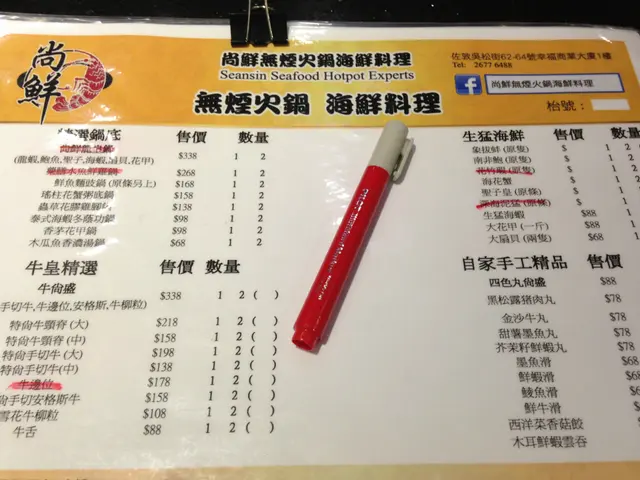 尚鮮
尚鮮無煙火鍋海鮮料理
Seansin Seafood Hotpot Experts
無煙火鍋 海鮮料理
佐敦吳松街62-64號幸福商業大廈1樓
Tel: 2677 6488
尚鮮無煙火鍋海鮮料理
枱號：
精選鍋底 售價 數量
(龍蝦,鮑魚,聖子,海蝦,扇貝,花甲) $338 1 2
$268 1 2
鮮魚麵豉鍋 (原條另上) $168 1 2
瑤柱花蟹粥底鍋 $158 1 2
蟲草花膠雞鍋 $138 1 2
泰式海蝦冬蔭功鍋 $98 1 2
香茅花甲鍋 $98 1 2
木瓜魚香濃湯鍋 $68 1 2
牛皇精選 售價 數量
牛尙盛
手切牛,牛邊位,安格斯,牛柳粒) $338 1 2 ( )
特尙牛頸脊 (大) $218 1 2 ( )
特尙牛頸脊 (中) $158 1 2 ( )
特尙手切牛 (大) $198 1 2 ( )
特尙手切牛(中) $138 1 2 ( )
牛邊位 $178 1 2 ( )
尙手切安格斯牛 $158 1 2 ( )
雪花牛柳粒 $108 1 2 ( )
牛舌 $88 1 2 ( )
生猛海鮮 售價 數量
象拔蚌 (原隻) $ 1 2
南非鮑 (原隻) $ 1 2
花竹蝦 (原隻) $ 1
海花蟹 $ 1
聖子皇 (原條) $ 1
深海泥猛 (原條) $ 1
生猛海蝦 $88 1
大花甲 (一斤) $88 1
大扇貝 (兩隻) $68 1
自家手工精品 售價
四色丸尙盛 $88
黑松露豬肉丸 $78
金沙牛丸 $78
甜薯墨魚丸 $78
芥茉籽鮮蝦丸 $78
墨魚滑 $68
鮮蝦滑
鯪魚滑
鮮牛滑
西洋菜香菇餃
木耳鮮蝦雲吞